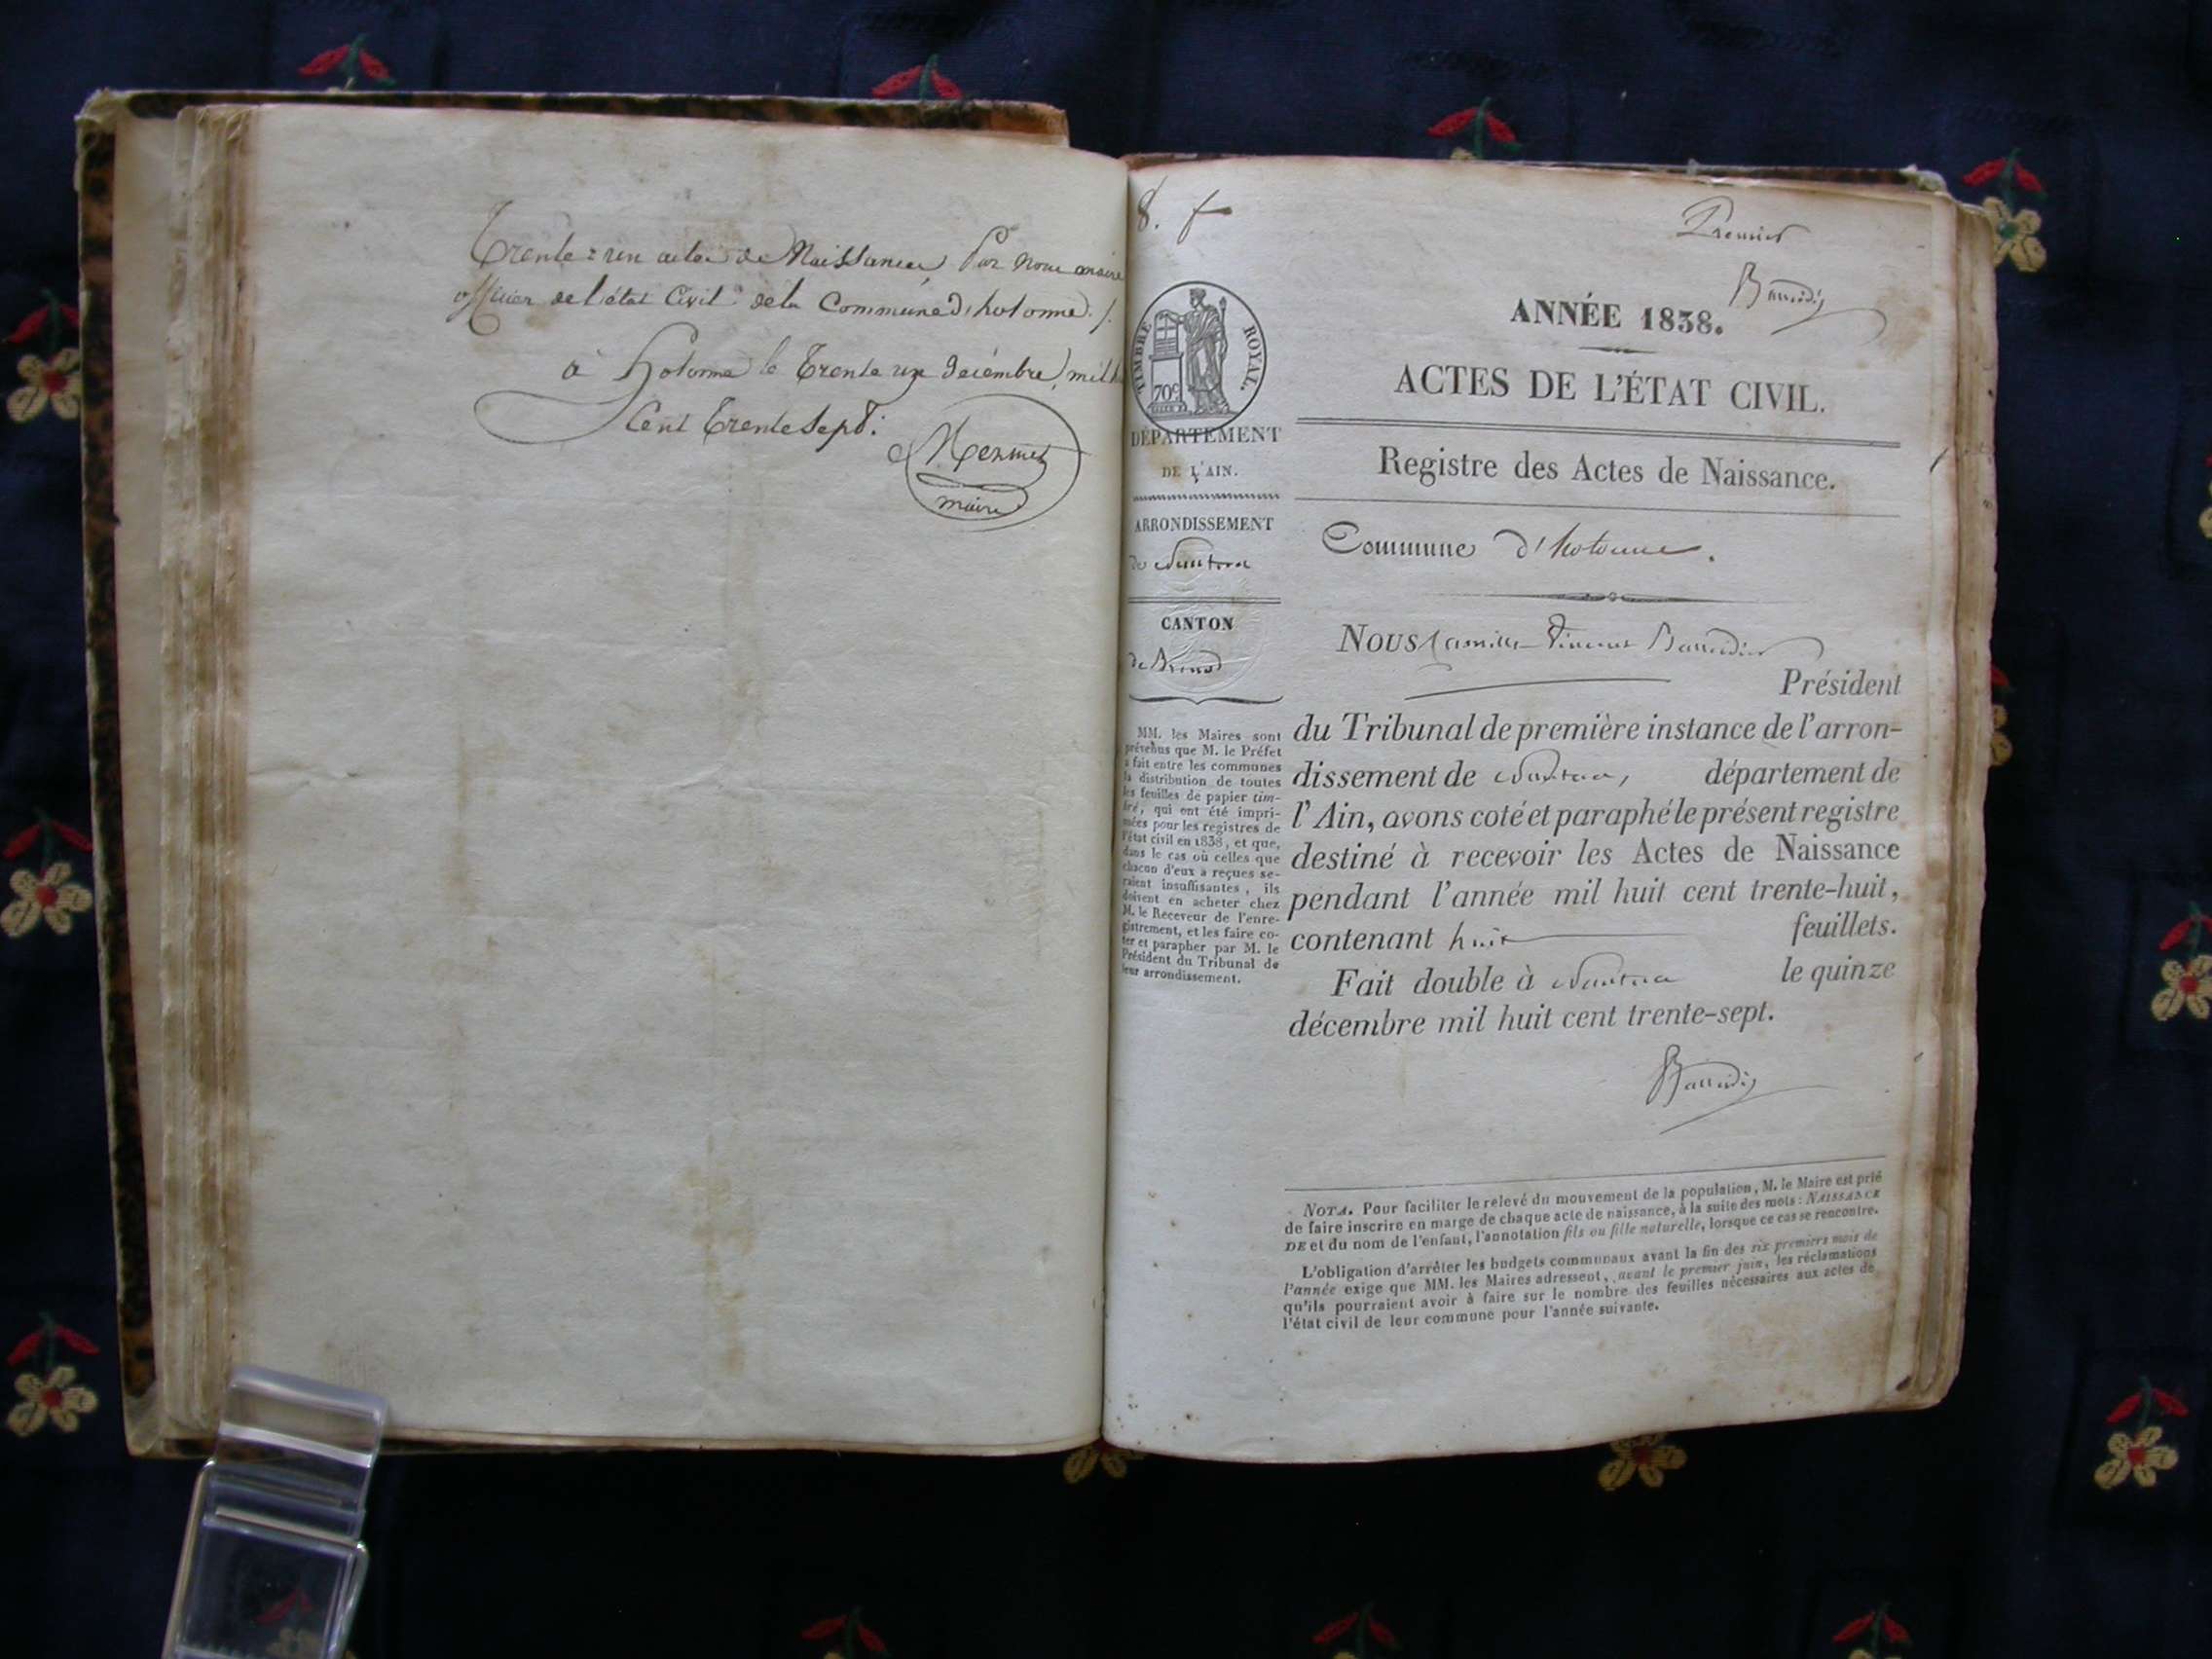 Trente un actes de Naissances, Par Nous maire
officier de l'état Civil de la Commune d'hotonne. /.
à hotonne le Trente un decémbre, mil
Cent Trente Sept.
Mermet
maire
8. f
Premier
Baurdi
TIMBRE ROYAL.
70c
DÉPARTEMENT
DE L'AIN.
ARRONDISSEMENT
de Nantua
CANTON
de Brenod
MM. les Maires sont
prévenus que M. le Préfet
a fait entre les communes
la distribution de toutes
les feuilles de papier tim-
bré, qui ont été impri-
mées pour les registres de
l'état civil en 1838, et que,
dans le cas où celles que
chacun d'eux a reçues se-
raient insuffisantes, ils
doivent en acheter chez
M. le Receveur de l'enre-
gistrement, et les faire co-
ter et parapher par M. le
Président du Tribunal de
leur arrondissement.
ANNÉE 1838.
ACTES DE L'ÉTAT CIVIL.
Registre des Actes de Naissance.
Commune d'hotonne.
NOUS Camille Vincent
Président
du Tribunal de première instance de l'arron-
dissement de Nantua, département de
l'Ain, avons coté et paraphé le présent registre
destiné à recevoir les Actes de Naissance
pendant l'année mil huit cent trente-huit,
contenant huit feuillets.
Fait double à Nantua le quinze
décembre mil huit cent trente-sept.
NOTA. Pour faciliter le relevé du mouvement de la population, M. le Maire est prié
de faire inscrire en marge de chaque acte de naissance, à la suite des mots : NAISSANCE
DE et du nom de l'enfant, l'annotation fils ou fille naturelle, lorsque ce cas se rencontre.
L'obligation d'arrêter les budgets communaux avant la fin des six premiers mois de
l'année exige que MM. les Maires adressent, avant le premier juin, les réclamations
qu'ils pourraient avoir à faire sur le nombre des feuilles nécessaires aux actes de
l'état civil de leur commune pour l'année suivante.